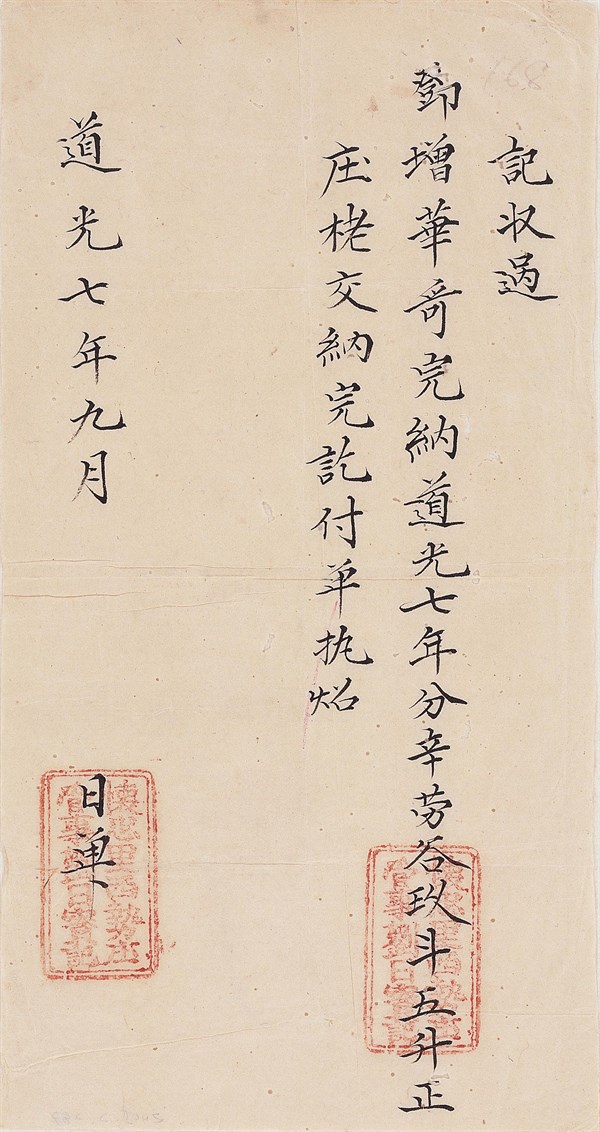 記収過
鄧增華哥完納道光七年分辛劳谷玖斗五升正
庄栳交納完訖付单执炤
道光七年九月 日单